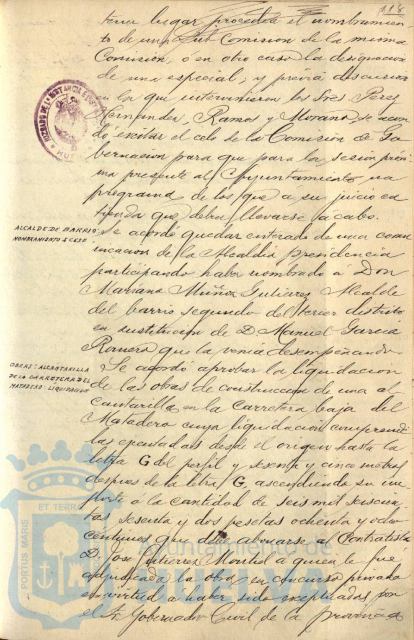 118
tener lugar procedia el nombramien
to de una Sub Comision de la misma
Comision, ó en otro caso la designacion
de una especial; y previa discusion
en la que intervinieron los Sres Perez
Hernandez, Ramos y Morano se acor
dó excitar el celo de la Comision de Go
bernacion para que para la sesion proxi
ma presente al Ayuntamiento un
programa de los que a su juicio en
tienda que deban llevarse a cabo.
JUZGADO DE 1ª INSTANCIA E INSTRUCCION
ALCALDE DE BARRIO
NOMBRAMIENTO Y CESE
Se acordó quedar enterado de una comu
nicacion de la Alcaldia Presidencia
participando haber nombrado a Don
Mariano Muñoz Gutierrez Alcalde
del barrio segundo del tercer distrito
en sustitucion de D. Manuel Garcia
Romero que la venia desempeñando
OBRAS: ALCANTARILLA
DE LA CARRETERA DEL
MATADERO: LIQUIDACION
Se acordó aprobar la liquidacion
de las obras de construccion de una al
cantarilla en la Carretera baja del
Matadero cuya liquidacion comprendi
las ejecutadas desde el origen hasta la
letra G del perfil y sesenta y cinco metros
despues de la letra G, ascendiendo su im
porte á la cantidad de seis mil seiscien
tas sesenta y dos pesetas ochenta y ocho
centimos que debe abonarse al Contratista
D. Jose Gutierrez Montiel a quien le fue
adjudicada la obra en concurso privado
en virtud a haber sido exceptuadas por
el Sr. Gobernador Civil de la provincia
ET TERRÆ
PORTUS MARIS
Ayuntamiento de